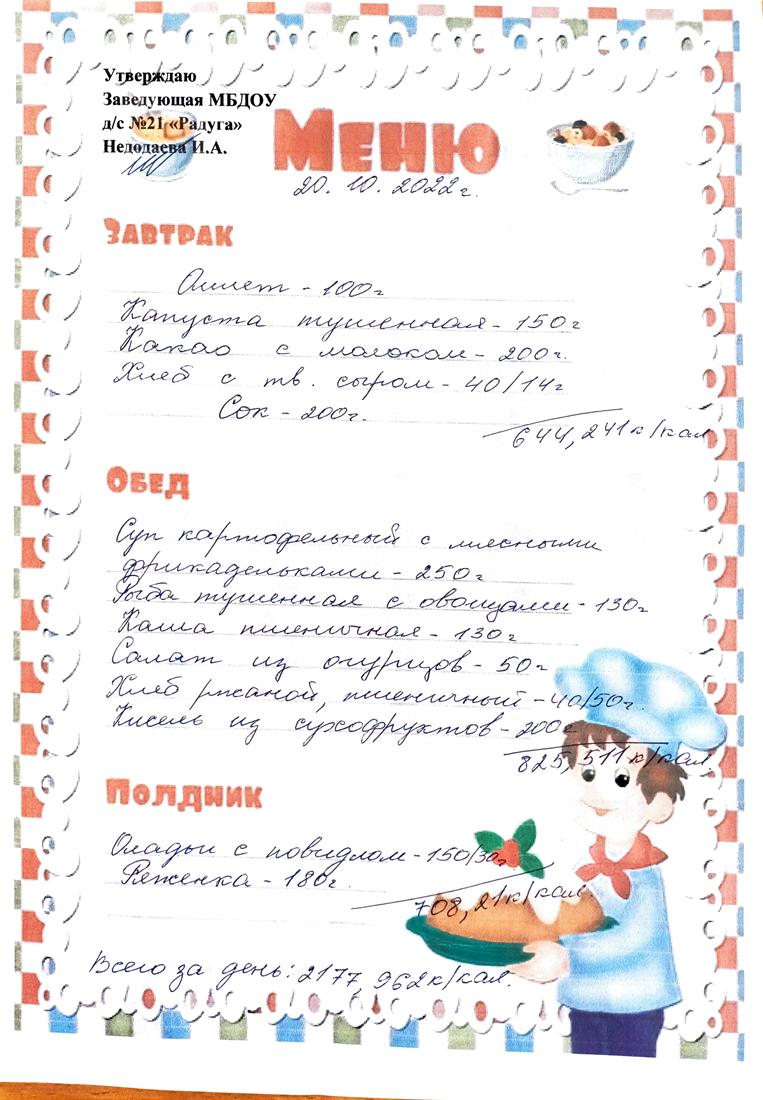 Утверждаю
Заведующая МБДОУ
д/с №21 «Радуга»
Недодаева И.А.
Меню
20. 10. 2022г.
Завтрак
Омлет - 100г
Капуста тушенная - 150г
Какао с молоком - 200г.
Хлеб с тв. сыром - 40/14г
Сок - 200г.
644,241к/кал
Обед
Суп картофельный с мясными
фрикадельками - 250г
Рыба тушенная с овощами - 130г
Каша пшеничная - 130г
Салат из огурцов - 50г
Хлеб ржаной, пшеничный - 40/50г.
Кисель из сухофруктов - 200г
825,511к/кал.
Полдник
Оладьи с повидлом - 150/30г
Ряженка - 180г.
708,21к/кал.
Всего за день: 2177,962к/кал.